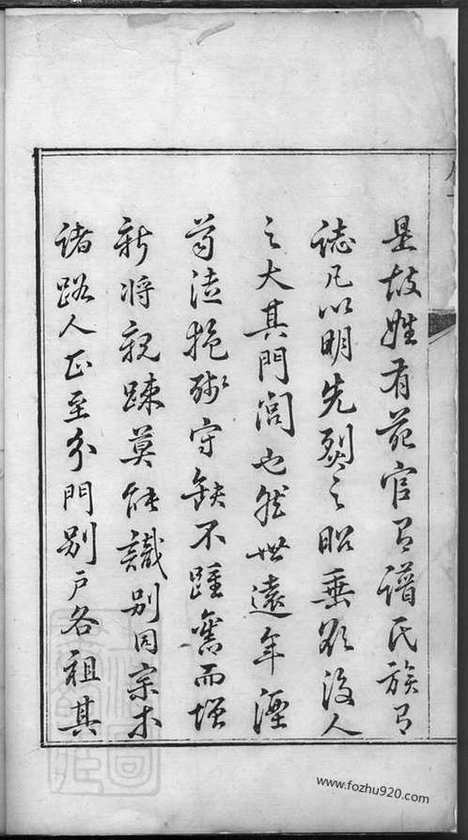 是故姓有苑官有譜氏族有
誌凡以明先烈之昭垂欲後人
之大其門閭也然世遠年湮
苟徒抱殘守缺不踵舊而增
新將親疎莫能識別同宗亦
諸路人正至分門別戶各祖其
www.fozhu920.com